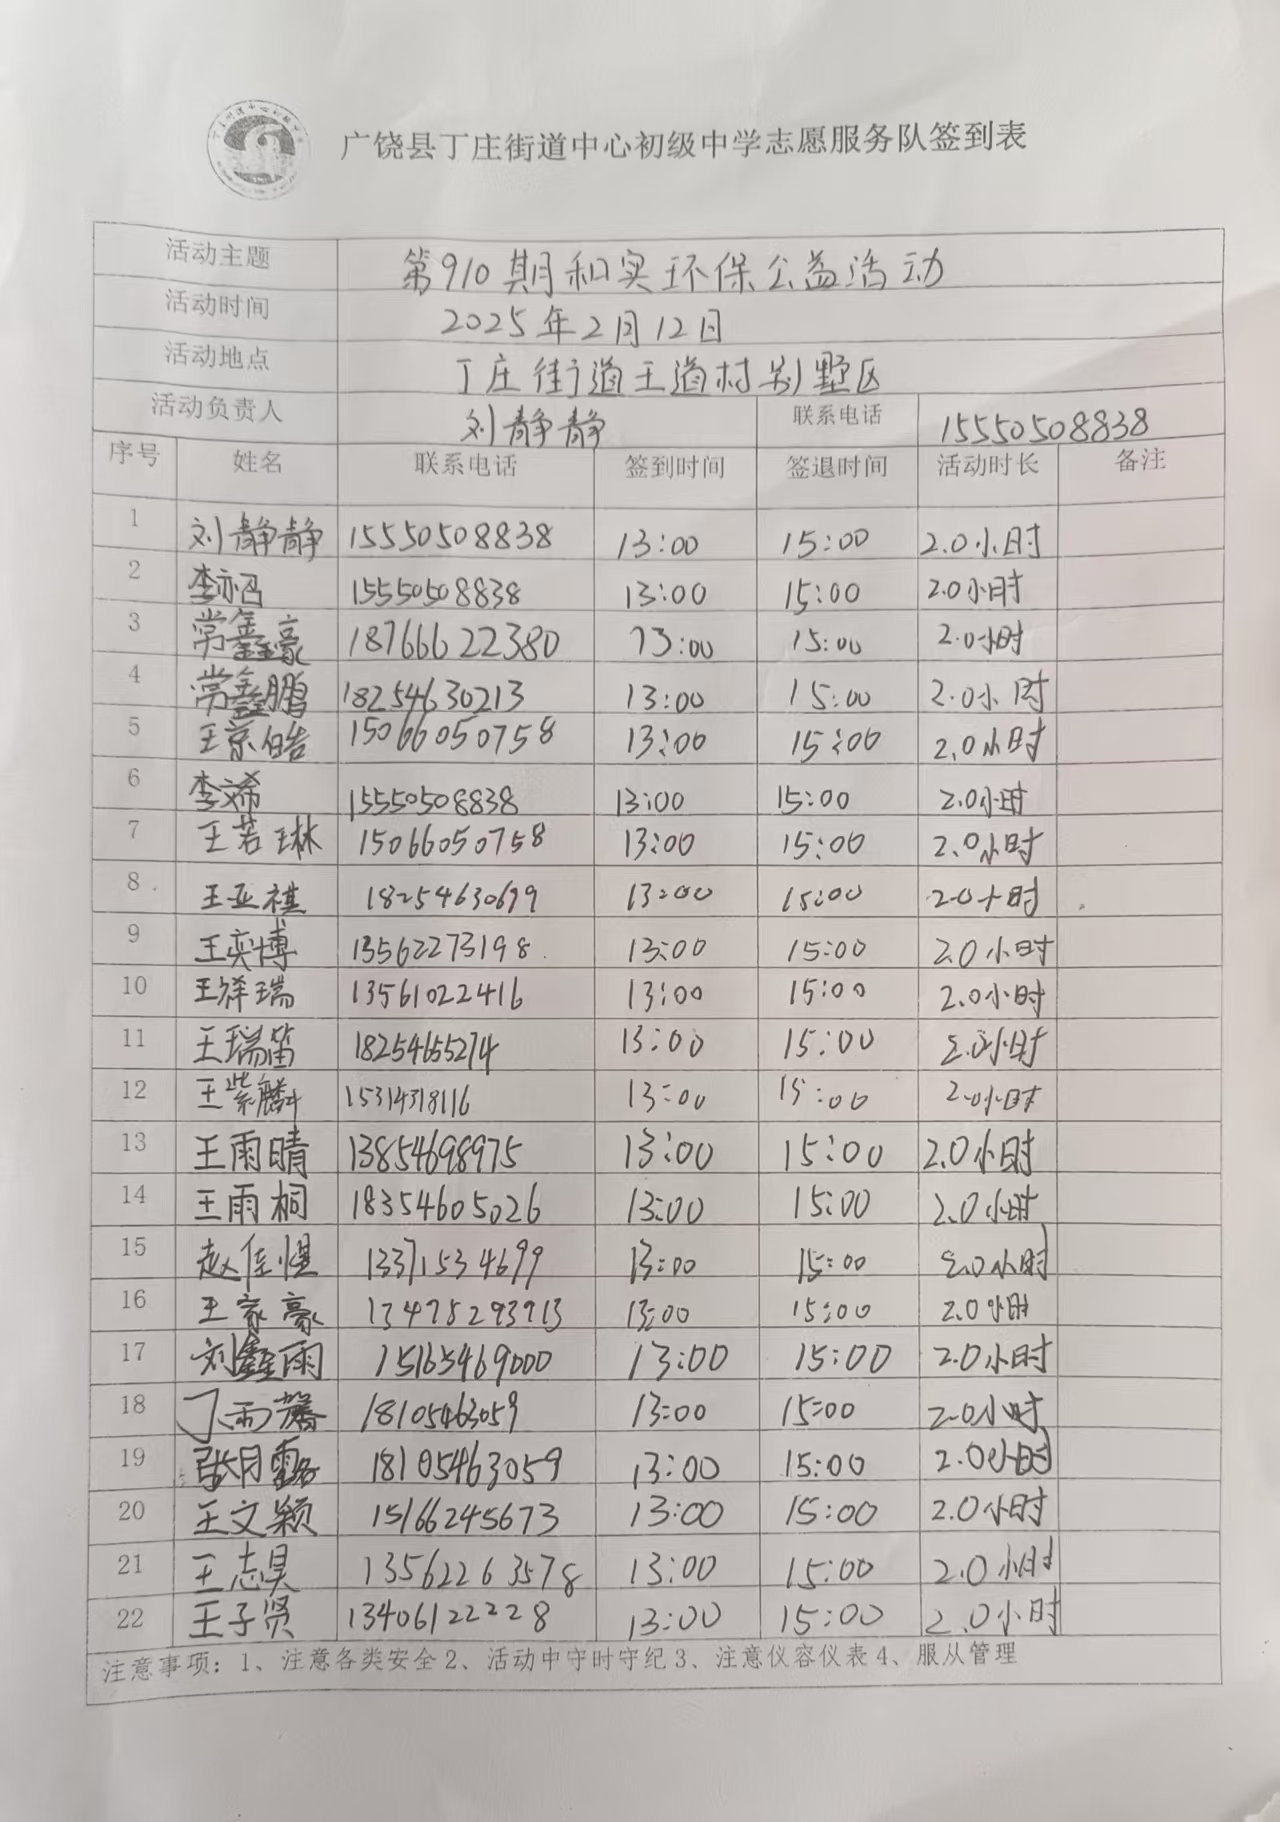 广饶县丁庄街道中心初级中学志愿服务队签到表
活动主题 第910期和实环保公益活动
活动时间 2025年2月12日
活动地点 丁庄街道王道村别墅区
活动负责人 刘静静 联系电话 15550508838
序号 姓名 联系电话 签到时间 签退时间 活动时长 备注
1 刘静静 15550508838 13:00 15:00 2.0小时
2 李亦 15550508838 13:00 15:00 2.0小时
3 常鑫豪 18766622380 13:00 15:00 2.0小时
4 常鑫鹏 18254630213 13:00 15:00 2.0小时
5 王京皓 15066050758 13:00 15:00 2.0小时
6 李文希 15550508838 13:00 15:00 2.0小时
7 王若琳 15066050758 13:00 15:00 2.0小时
8 王亚祺 18254630699 13:00 15:00 2.0小时
9 王奕博 13562273198 13:00 15:00 2.0小时
10 王祥瑞 13561022416 13:00 15:00 2.0小时
11 王瑞笛 18254655274 13:00 15:00 2.0小时
12 王紫麟 15314318116 13:00 15:00 2.0小时
13 王雨晴 13854698975 13:00 15:00 2.0小时
14 王雨桐 18354605026 13:00 15:00 2.0小时
15 赵佳惺 13371534699 13:00 15:00 2.0小时
16 王家豪 13475293913 13:00 15:00 2.0小时
17 刘鑫雨 15165469000 13:00 15:00 2.0小时
18 丁雨馨 18105463059 13:00 15:00 2.0小时
19 张月露 18105463059 13:00 15:00 2.0小时
20 王文颖 15166245673 13:00 15:00 2.0小时
21 王志昊 13562263578 13:00 15:00 2.0小时
22 王子贤 13406122228 13:00 15:00 2.0小时
注意事项：1、注意各类安全2、活动中守时守纪3、注意仪容仪表4、服从管理